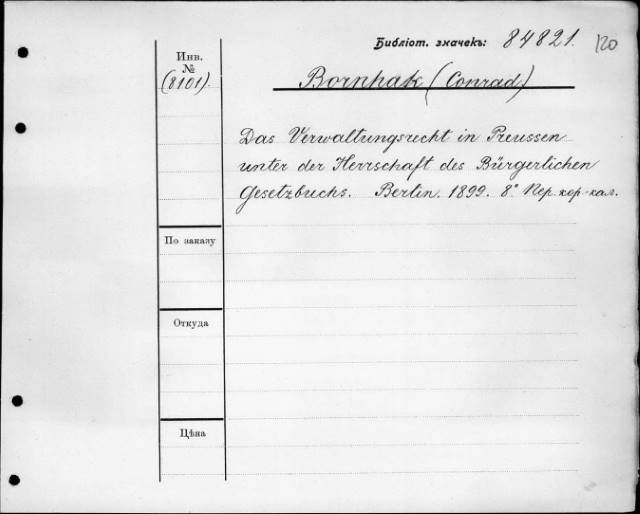 Библіот. значекъ: 84821. 120
Инв.
№
(8101)
Bornhak (Conrad)
Das Verwaltungsrecht in Preussen
unter der Herrschaft des Bürgerlichen
Gesetzbuchs. Berlin. 1899. 8° Пер. кор.-кал.
По заказу
Откуда
Цѣна